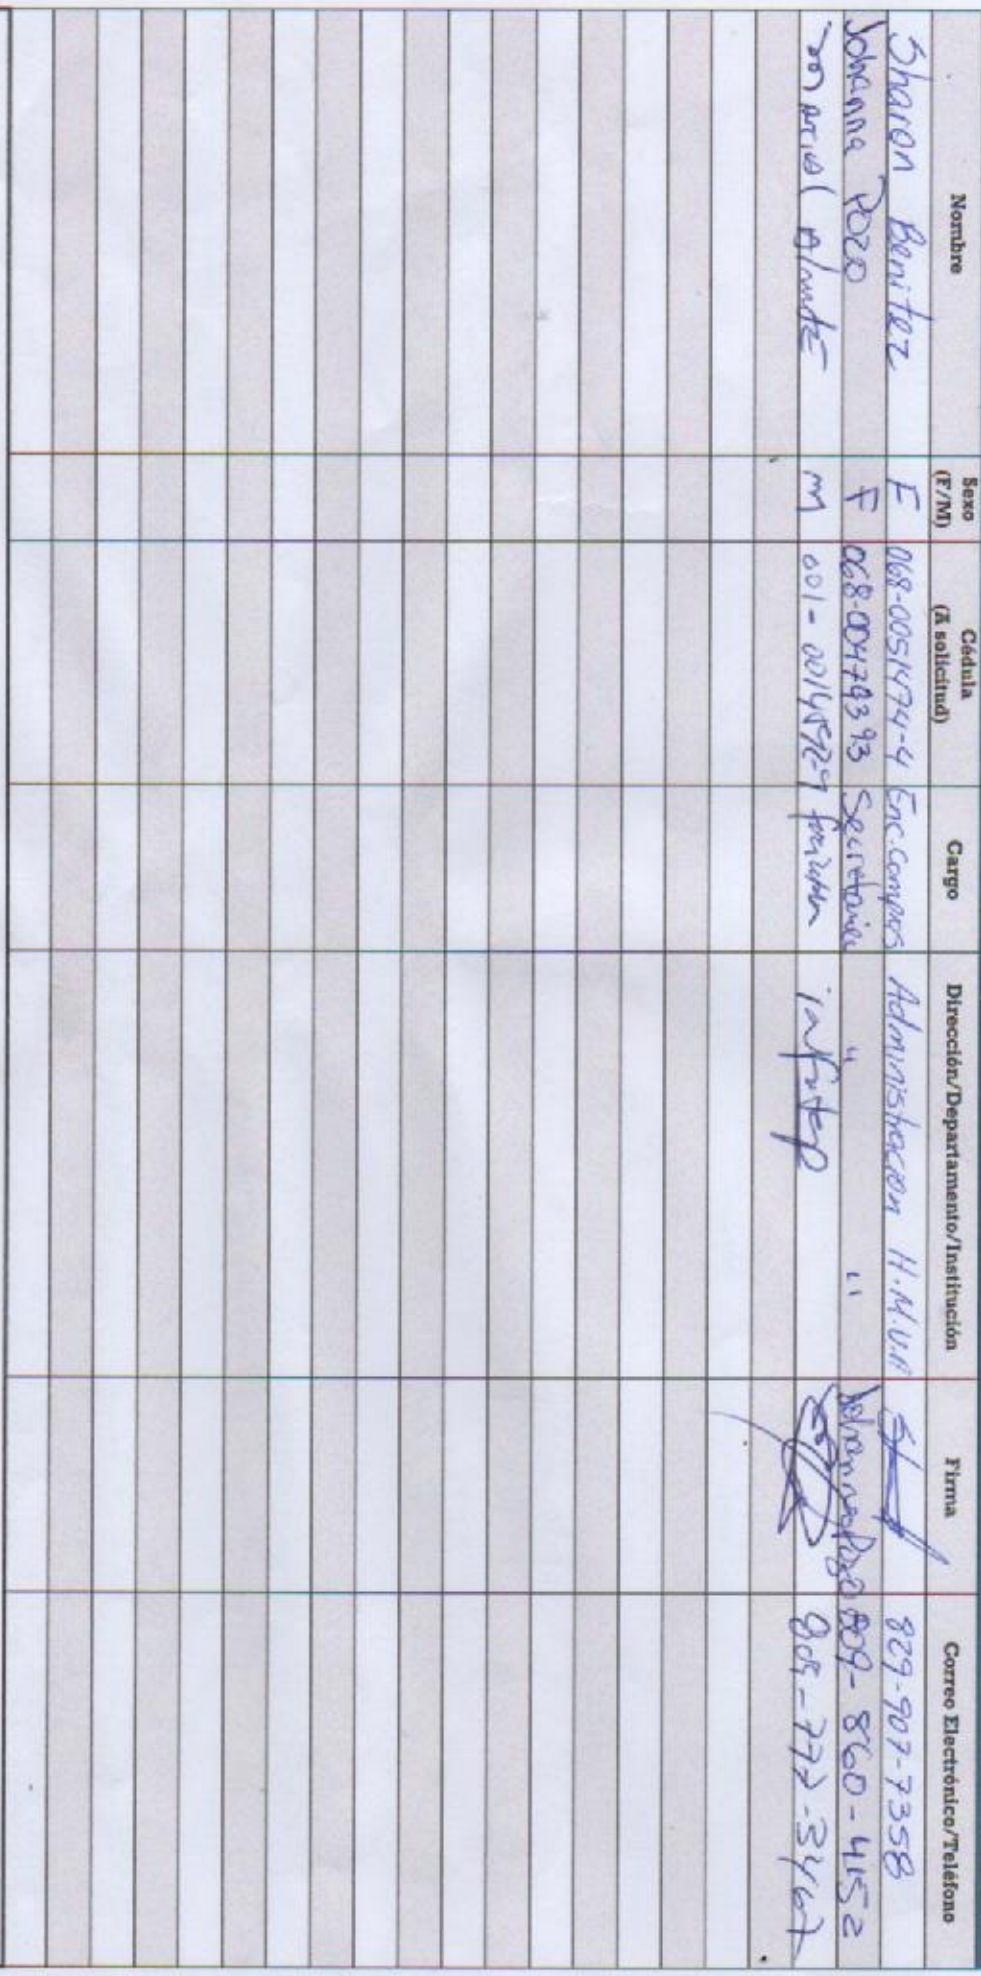 Nombre Sexo (F/M) Cédula (A solicitud) Cargo Dirección/Departamento/Institución Firma Correo Electrónico/Teléfono
Sharon Benitez F 068-0051474-4 Enc. compras Administracion H.M.V.A 829-907-7358
Johanna Pozo F 068-0047939 3 Secretaria " " Johanna Pozo 809-860-4152
marcial Almonte M 001- infotep 809-777-3467